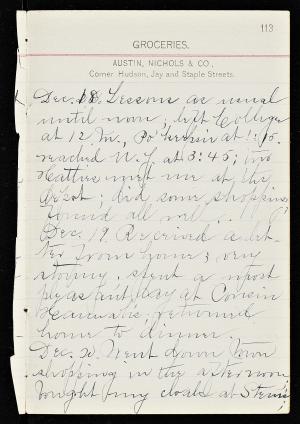 113
GROCERIES.
AUSTIN, NICHOLS & CO.,
Corner Hudson, Jay and Staple Streets.
Dec. 18. Lessons as usual
until noon; left College
at 12 m., Po'keepsie at 1:15.
reached N.Y. at 3:45;
Hattie met me at the
depot; did some shopping
found all well.
Dec. 19. Received a let-
ter from home; very
stormy. spent a most
pleasant day at Cousin
returned
home to dinner.
Dec. 20. Went down town
shopping in the afternoon,
bought my cloak at Stern's;